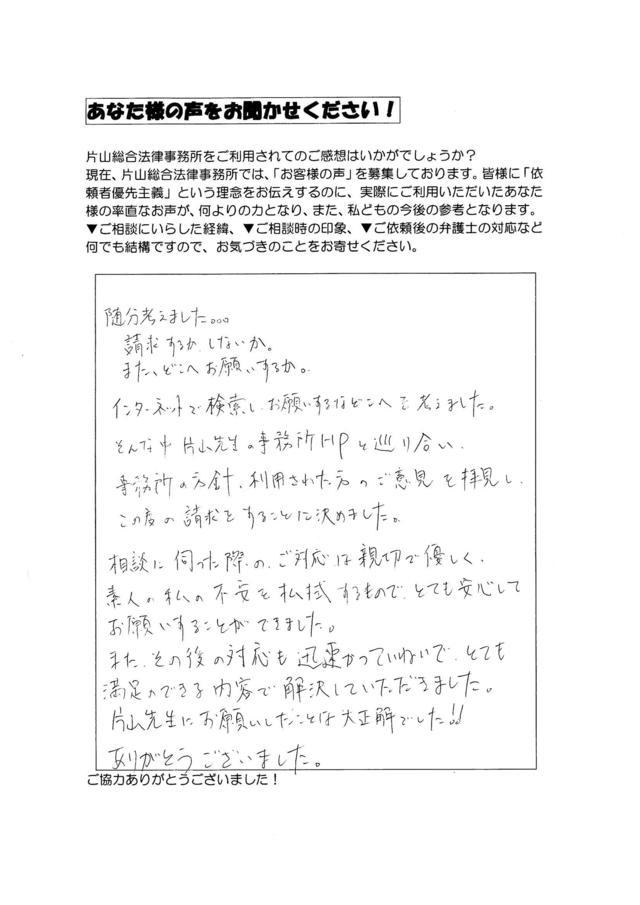 あなた様の声をお聞かせください！
片山総合法律事務所をご利用されてのご感想はいかがでしょうか？
現在、片山総合法律事務所では、「お客様の声」を募集しております。皆様に「依
頼者優先主義」という理念をお伝えするのに、実際にご利用いただいたあなた
様の率直なお声が、何よりの力となり、また、私どもの今後の参考となります。
▼ご相談にいらした経緯、▼ご相談時の印象、▼ご依頼後の弁護士の対応など
何でも結構ですので、お気づきのことをお寄せください。
随分考えました。。。
請求するか、しないか。
また、どこへお願いするか。
インターネットで検索し、お願いするならどこへと考えました。
そんな中 片山先生の事務所HPと巡り合い、
事務所の方針、利用された方のご意見を拝見し、
この度の請求をすることに決めました。
相談に伺った際の、ご対応は親切で優しく、
素人の私の不安を払拭するもので、とても安心して
お願いすることができました。
また、その後の対応も迅速かつていねいで、とても
満足のできる内容で解決していただきました。
片山先生にお願いしたことは大正解でした!!
ありがとうございました。
ご協力ありがとうございました！